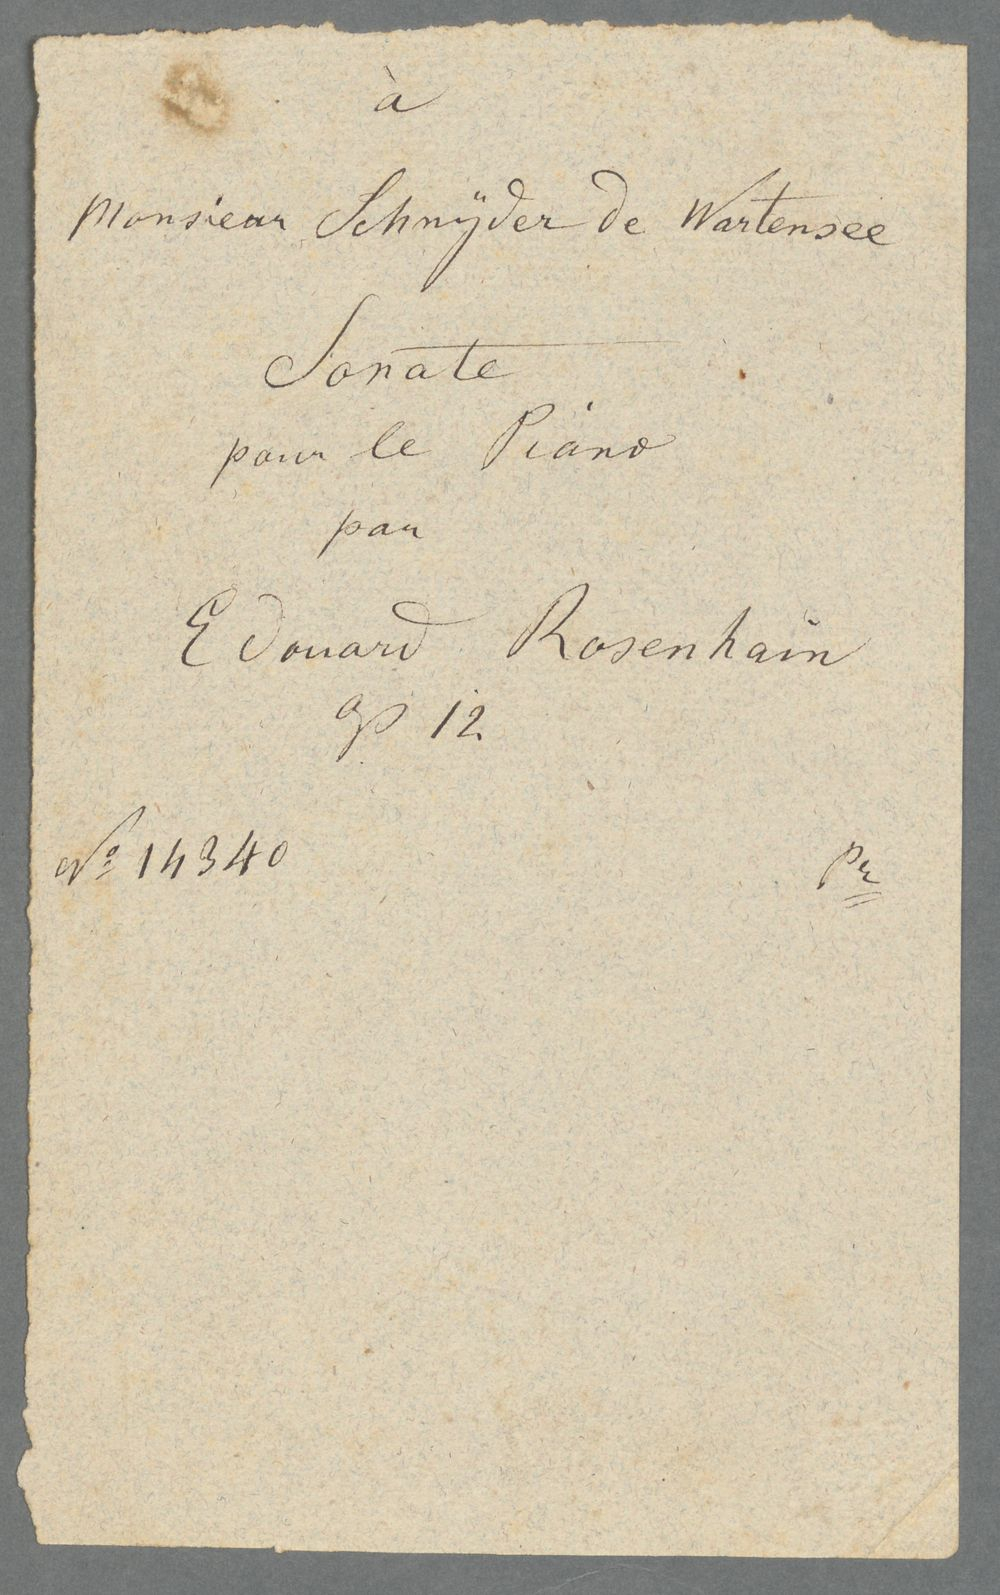 à
Monsieur Schnÿder de Wartensee
Sonate
pour le Piano
par
Edouard Rosenhain
op 12
No 14340 Pr